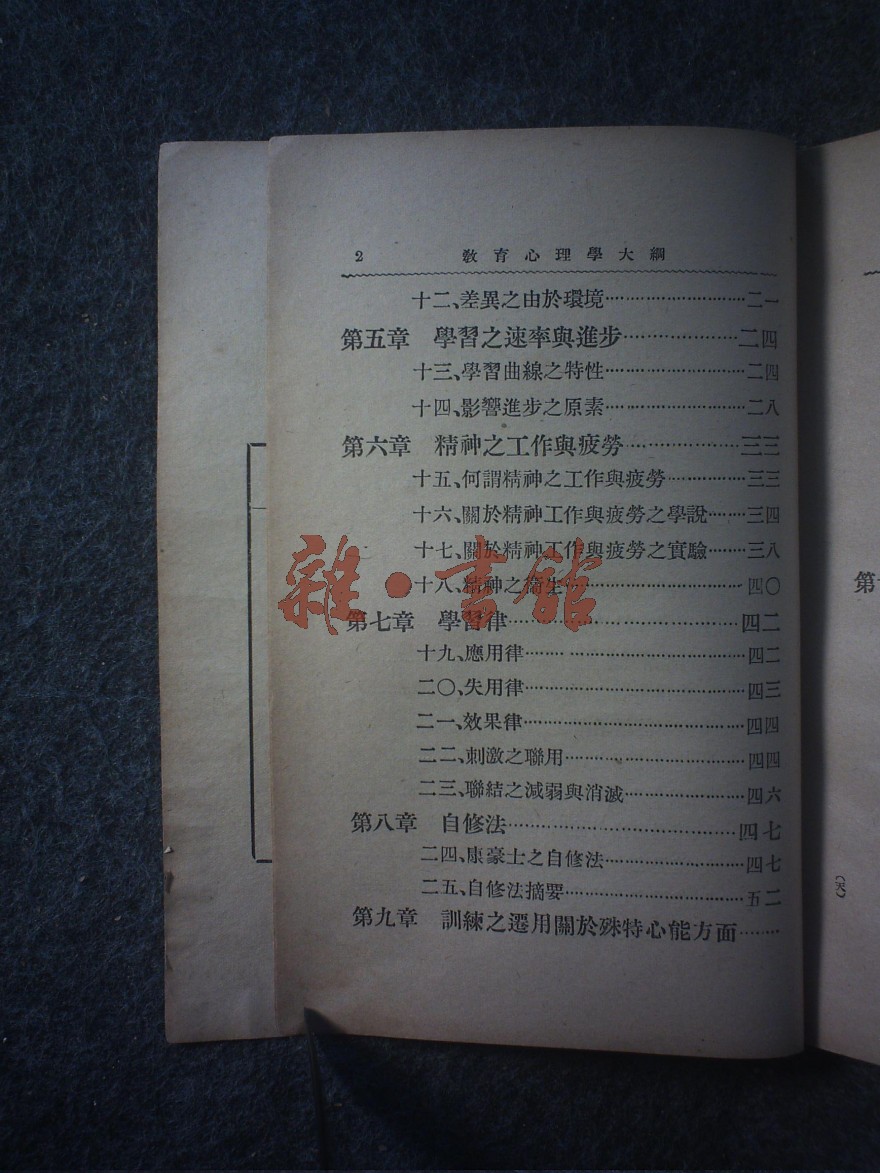 2 教育心理學大綱
十二、差異之由於環境……二一
第五章 學習之速率與進步……二四
十三、學習曲線之特性……二四
十四、影響進步之原素……二八
第六章 精神之工作與疲勞……三三
十五、何謂精神之工作與疲勞……三三
十六、關於精神工作與疲勞之學說……三四
十七、關於精神工作與疲勞之實驗……三八
十八、精神之衛生……四〇
第七章 學習律……四二
十九、應用律……四二
二〇、失用律……四三
二一、效果律……四四
二二、刺激之聯用……四四
二三、聯結之減弱與消滅……四六
第八章 自修法……四七
二四、康豪士之自修法……四七
二五、自修法摘要……五二
第九章 訓練之遷用關於殊特心能方面……
雜·書館
第